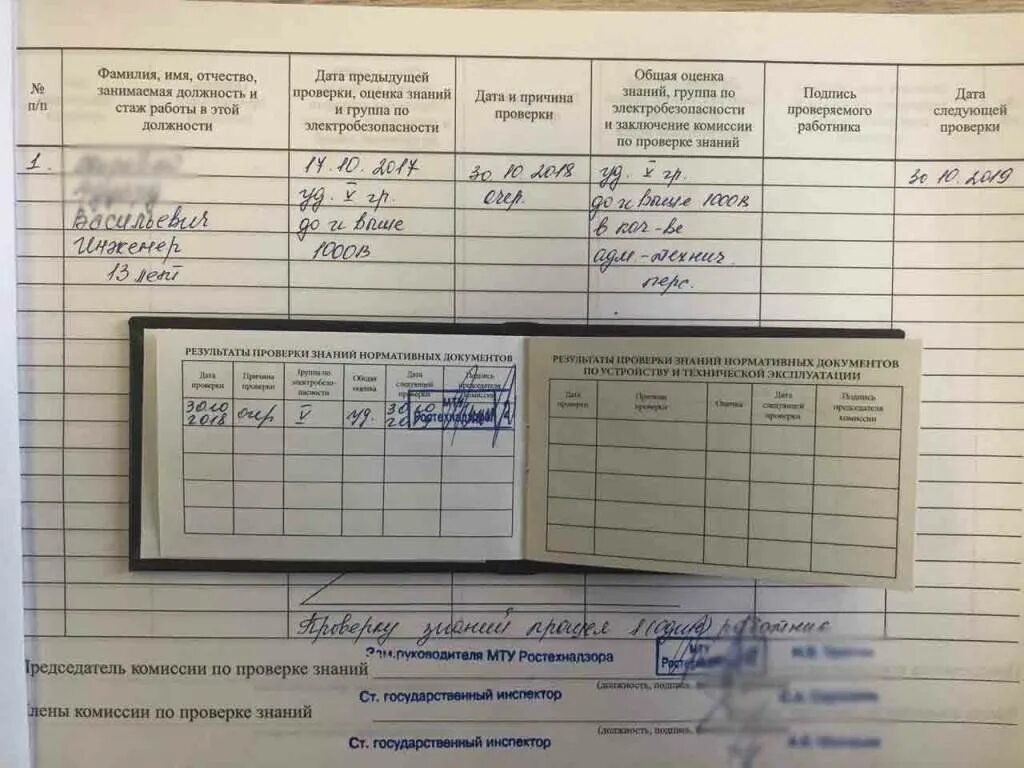 № п/п
Фамилия, имя, отчество, занимаемая должность и стаж работы в этой должности
Дата предыдущей проверки, оценка знаний и группа по электробезопасности
Дата и причина проверки
Общая оценка знаний, группа по электробезопасности и заключение комиссии по проверке знаний
Подпись проверяемого работника
Дата следующей проверки
1. 17.10.2017 30 10 2018 уд. V гр. 30 10.2019
уд. V гр. очер. до и выше 1000В
Васильевич до и выше в кач-ве
Инженер 1000В адм.-технич.
13 лет перс.
РЕЗУЛЬТАТЫ ПРОВЕРКИ ЗНАНИЙ НОРМАТИВНЫХ ДОКУМЕНТОВ
Дата проверки
Причина проверки
Группа по электробезопасности
Общая оценка
Дата следующей проверки
Подпись председателя комиссии
30 10 2018 очер V уд. 30 10
МТУ
Ростехнадзора
РЕЗУЛЬТАТЫ ПРОВЕРКИ ЗНАНИЙ НОРМАТИВНЫХ ДОКУМЕНТОВ
ПО УСТРОЙСТВУ И ТЕХНИЧЕСКОЙ ЭКСПЛУАТАЦИИ
Дата проверки
Причина проверки
Оценка
Дата следующей проверки
Подпись председателя комиссии
Проверку знаний прошел 1 (один) работник
Председатель комиссии по проверке знаний
Зам.руководителя МТУ Ростехнадзора
МТУ
(должность, подпись
Ст. государственный инспектор
Члены комиссии по проверке знаний
(должность, подпись
Ст. государственный инспектор